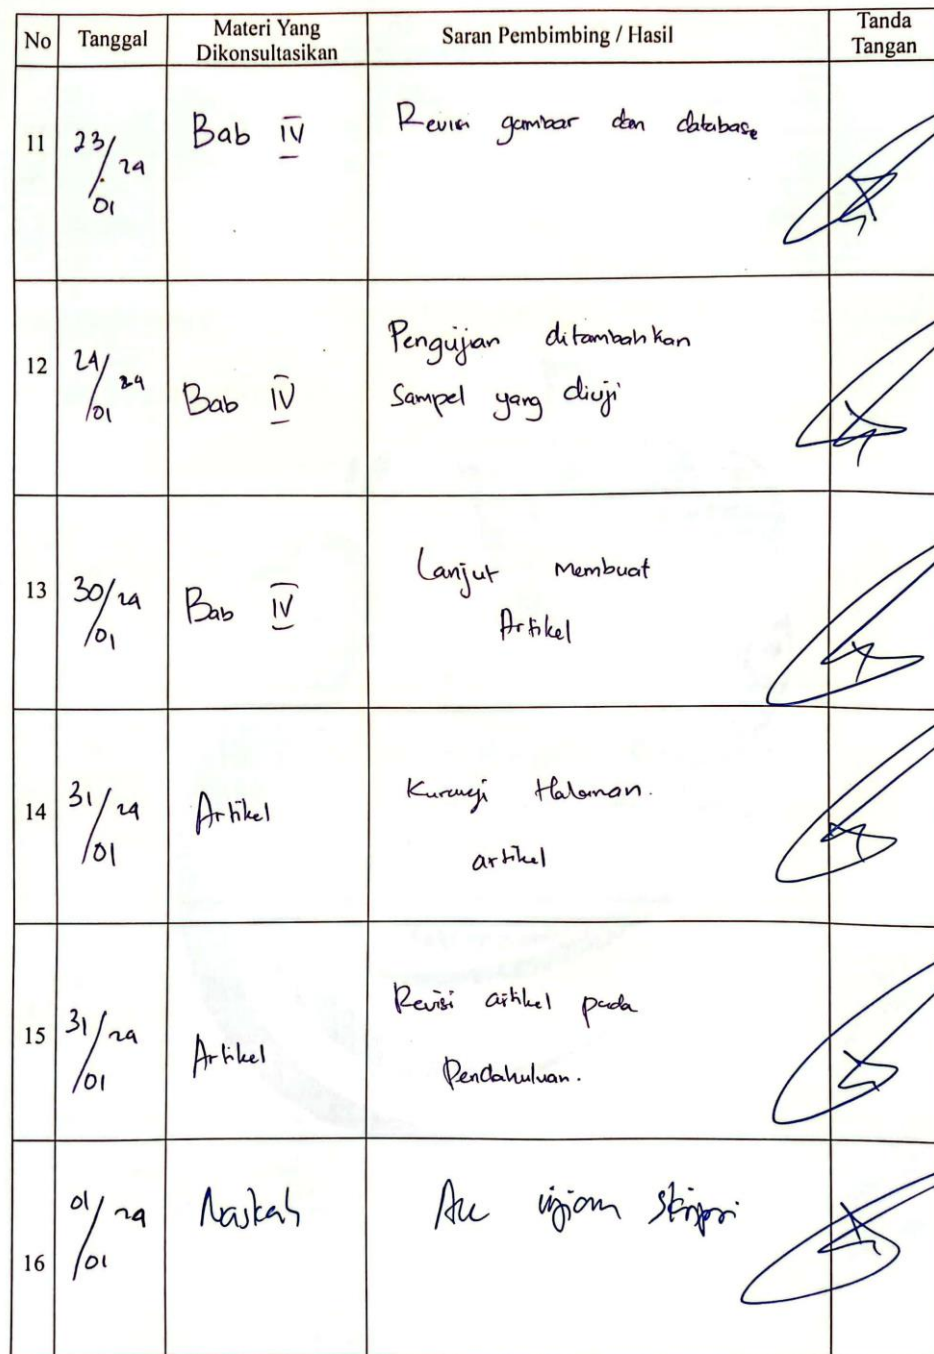 No Tanggal Materi Yang Dikonsultasikan Saran Pembimbing / Hasil Tanda Tangan
11 23/01 24 Bab IV Revisi gambar dan database
12 24/01 24 Bab IV Pengujian ditambahkan
Sampel yang diuji
13 30/01 24 Bab IV Lanjut membuat
Artikel
14 31/01 24 Artikel Kurangi Halaman.
artikel
15 31/01 24 Artikel Revisi artikel pada
Pendahuluan.
16 01/01 24 Naskah Acc ujian skripsi